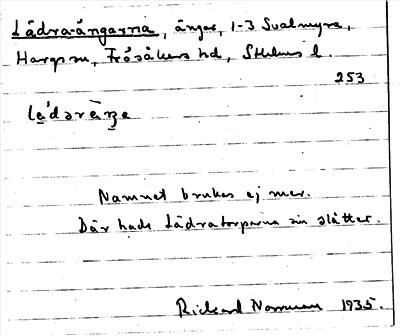 Lädra-ängarna, ängar, 1-3 Svalmyra,
Hargs sn, Frösåkers hd, Sthlms l.
253
Namnet brukas ej mer.
Där hade Lädratorparna sin slåtter.
Rickard Norrman 1935.